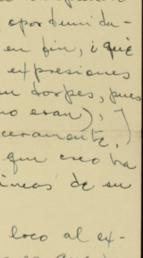 oportunida-
en fin, ¿qué
expresiones
torpes, pues
no eran),
ceramente,
que creo ha
líneas de su
loco al ex-